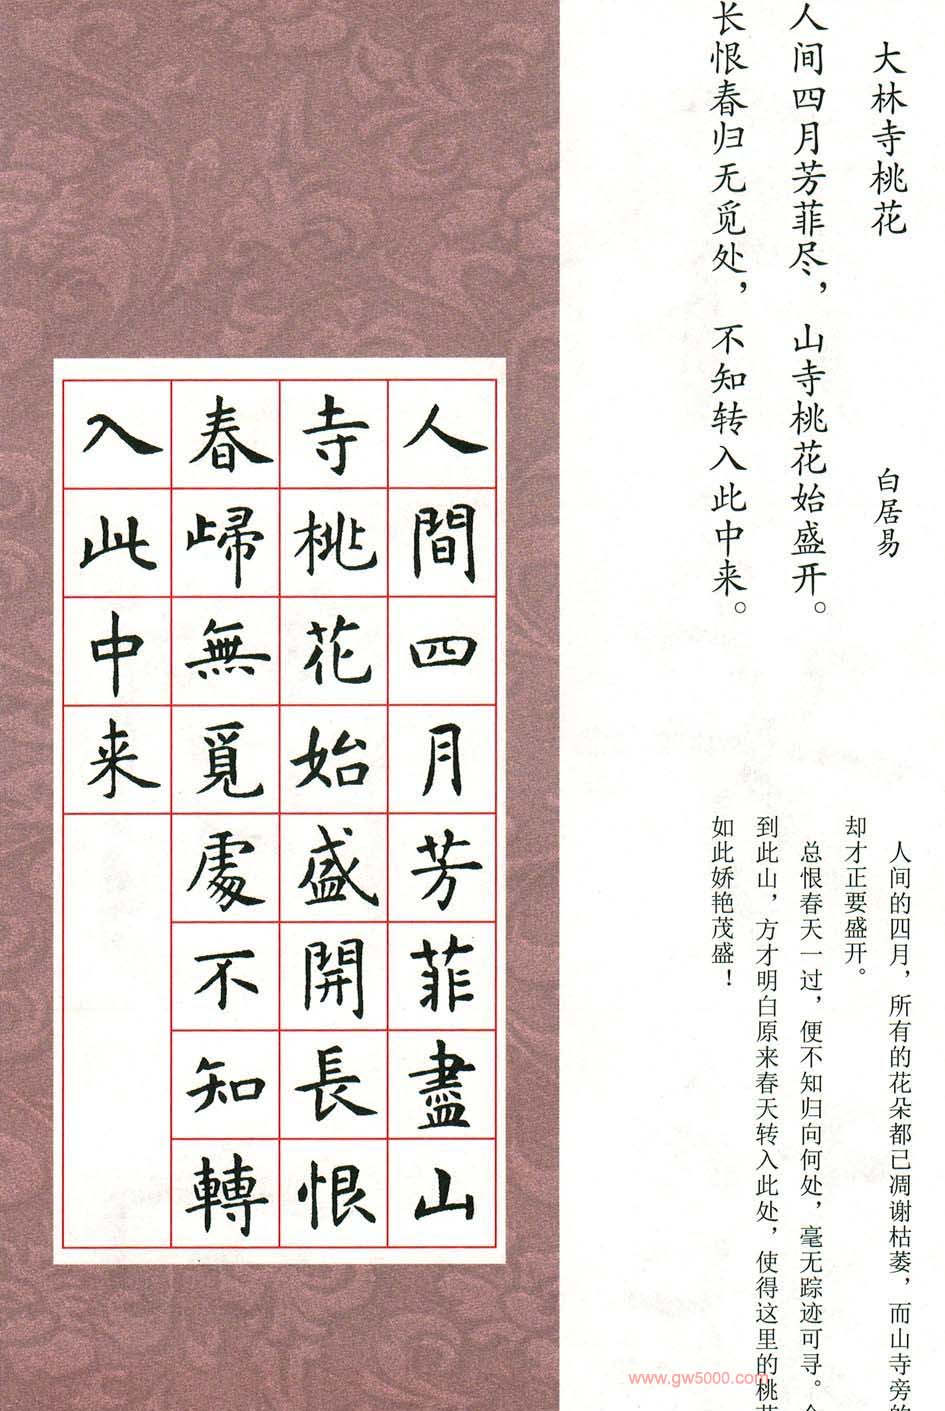 大林寺桃花
白居易
人间四月芳菲尽，山寺桃花始盛开。
长恨春归无觅处，不知转入此中来。
人间的四月，所有的花朵都已凋谢枯萎，而山寺旁的
却才正要盛开。
总恨春天一过，便不知归向何处，毫无踪迹可寻。
到此山，方才明白原来春天转入此处，使得这里的桃花
如此娇艳茂盛！
人間四月芳菲盡山
寺桃花始盛開長恨
春歸無覓處不知轉
入此中来
www.gw5000.com